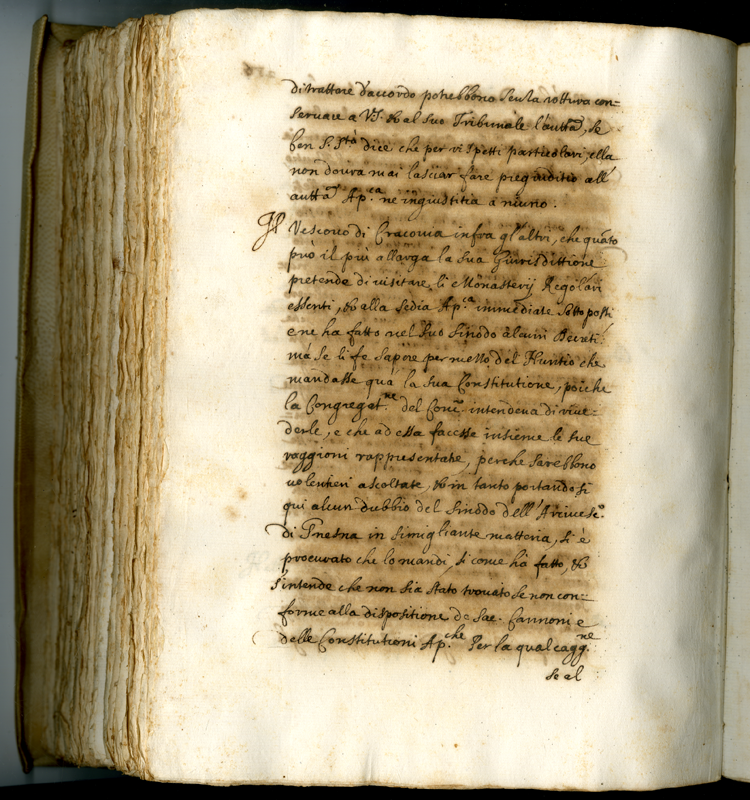 di trattare d'accordo potrebbono senza rottura con=
servare a V.S. & al suo Tribunale l'auttà, se
ben S. Stà dice che per rispetti particolari, ella
non dovrà mai lasciar fare pregiuditio all'
auttà Ap.ca ne ingiustitia a niuno.
Il Vescovo di Cracovia infra gl'altri, che quãto
può il più allarga la sua Giurisdittione
pretende di visitare li Monasterij Regolari
essenti, & alla Sedia Ap.ca immediate sottoposti
e ne ha fatto nel suo sinodo alcuni Decreti:
mà se li fe sapere per mezzo del Nuntio che
mandasse quà la sua Constitutione, poiche
la Congregat.ne del Conc. intendeva di rive=
derle, e che ad essa facesse insieme le sue
raggioni rappresentate, perche sarebbono
volentieri ascoltate, & in tanto portandosi
qui alcun dubbio del sinodo dell'Arcivesc.o
di Gnesna in simigliante matteria, si è
procurato che lo mandi, si come hà fatto, &
s'intende che non sia stato trovato se non con=
forme alla dispositione de Sac. Cannoni e
delle Constitutioni Ap.che Per la qual cagg.ne
se al